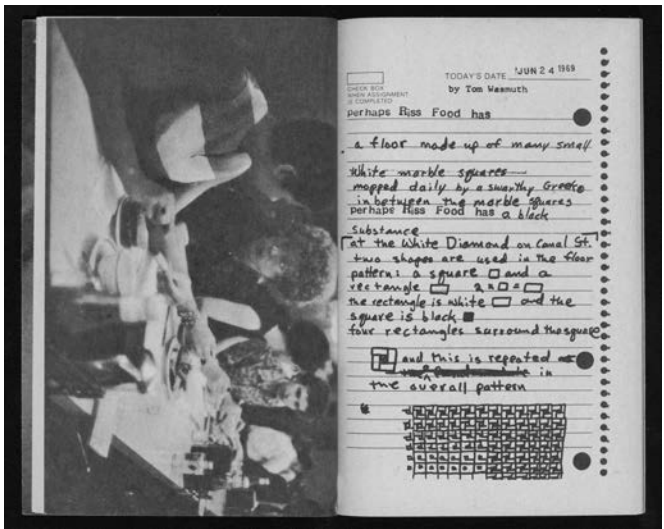 TODAY'S DATE JUN 24 1969
CHECK BOX
WHEN ASSIGNMENT
IS COMPLETED
by Tom Wasmuth
perhaps Riss Food has
a floor made up of many small
white marble squares
mopped daily by a swarthy Greek
in between the marble squares
perhaps Riss Food has a black
substance
at the White Diamond on Canal St.
two shapes are used in the floor
pattern: a square and a
rectangle 2 x =
the rectangle is white and the
square is black
four rectangles surround the square
and this is repeated
in
the overall pattern